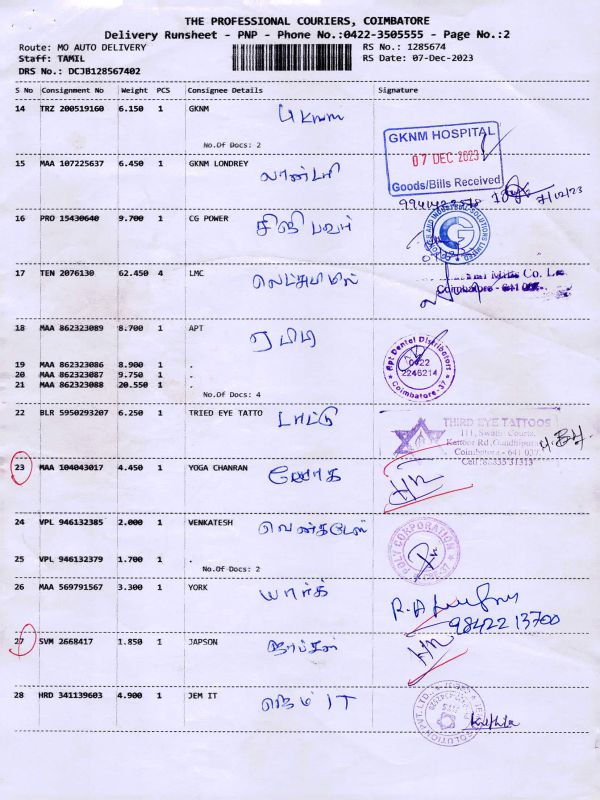 THE PROFESSIONAL COURIERS, COIMBATORE
Delivery Runsheet - PNP - Phone No.:0422-3505555 - Page No.:2
Route: MO AUTO DELIVERY RS No.: 1285674
Staff: TAMIL RS Date: 07-Dec-2023
DRS No.: DCJB128567402
S No Consignment No Weight PCS Consignee Details Signature
14 TRZ 200519160 6.150 1 GKNM
No.Of Docs: 2
GKNM HOSPITAL
07 DEC 2023
Goods/Bills Received
15 MAA 107225637 6.450 1 GKNM LONDREY லாண்டரி
7/12/23
16 PRO 15430640 9.700 1 CG POWER சிஜி பவர்
17 TEN 2076130 62.450 4 LMC
Mills Co. L
Coimbatore - 641
18 MAA 862323089 8.700 1 APT ஏபிடி
Apt Dental Distributors
0422
2246214
Coimbatore-37
19 MAA 862323086 8.900 1 .
20 MAA 862323087 9.750 1 .
21 MAA 862323088 20.550 1 .
No.Of Docs: 4
22 BLR 5950293207 6.250 1 TRIED EYE TATTO டாட்டு
THIRD EYE TATTOOS
111, Swathi Courts,
Kattoor Rd, Gandhipuram
Coimbatore - 641 037
Cell: 88335 31313
23 MAA 104043017 4.450 1 YOGA CHANRAN யோக
24 VPL 946132385 2.000 1 VENKATESH வெங்கடேஸ்
25 VPL 946132379 1.700 1 .
No.Of Docs: 2
26 MAA 569791567 3.300 1 YORK யார்க்
98422 13700
27 SVM 2668417 1.850 1 JAPSON ஜாப்சன்
28 HRD 341139603 4.900 1 JEM IT ஜெம் IT